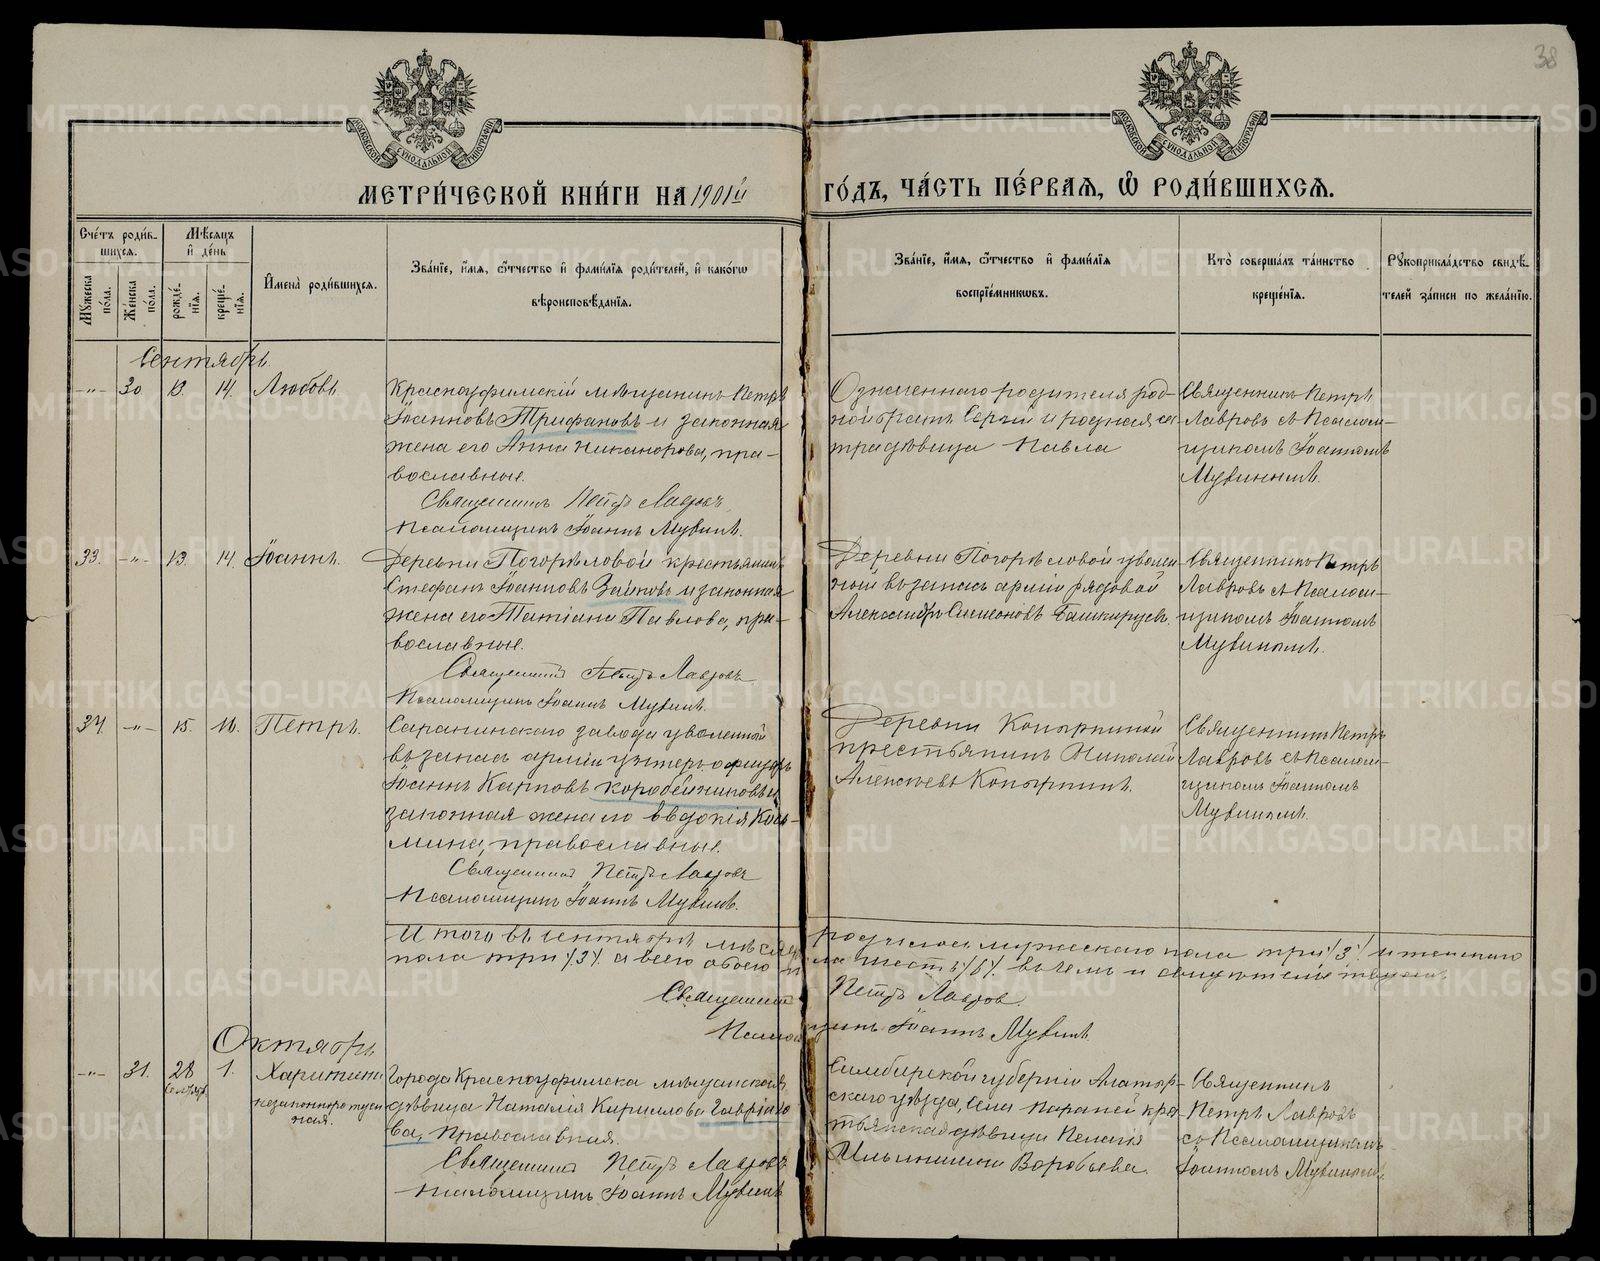 38
МОСКОВСКОЙ СУНОДАЛЬНОЙ ТИПОГРАФІИ
МОСКОВСКОЙ СУНОДАЛЬНОЙ ТИПОГРАФІИ
МЕТРИ́ЧЕСКОЙ КНИ́ГИ НА 1901й ГО́ДЪ, ЧА́СТЬ ПЕ́РВАѦ, Ѡ҆ РОДИ́ВШИХСѦ.
Сче́тъ роди́в-
шихсѧ.
Мꙋ́жеска по́ла.
Же́нска по́ла.
Мѣ́сѧцъ
и҆ де́нь
рожде́-
нїѧ.
креще́-
нїѧ.
И҆мена̀ роди́вшихсѧ.
Зва́нїе, и҆́мѧ, ѻ҆́тчество и҆ фами́лїѧ роди́телей, и҆ како́гѡ
вѣроисповѣ́данїѧ.
Зва́нїе, и҆́мѧ, ѻ҆́тчество и҆ фами́лїѧ
воспрїе́мникѡвъ.
Кто̀ соверша́лъ та́инство
креще́нїѧ.
Рꙋкоприкла́дство свидѣ́-
телей за́писи по жела́нїю.
Сентябрь.
-"- 30. 13. 14. Любовь.
Красноуфимскій мѣщанинъ Петръ
Іоанновъ Трифановъ и законная
жена его Анна Никанорова, пра-
вославные.
Священникъ Петръ Лавровъ
Псаломщикъ Іоаннъ Мувинъ.
Означеннаго родителя род-
ной братъ Сергій и родная се-
тра дѣвица Павла
Священникъ Петръ
Лавровъ съ Псалом-
щикомъ Іоанномъ
Мувинымъ.
33. -"- 13. 14. Іоаннъ.
Деревни Погорѣловой крестьянинъ
Стефанъ Іоанновъ Зайковъ и законная
жена его Татіана Павлова, пра-
вославные.
Священникъ Петръ Лавровъ
Псаломщикъ Іоаннъ Мувинъ.
Деревни Погорѣловой уволен
ный въ запасъ арміи рядовой
Александръ Симеоновъ Башкирцевъ.
Священникъ Петръ
Лавровъ съ Псалом-
щикомъ Іоанномъ
Мувинымъ.
34. -"- 15. 16. Петръ.
Саранинскаго завода уволенный
въ запасъ арміи унтеръ-офицеръ
Іоаннъ Карповъ Коробейниковъ и
законная жена его Евдокія Кось-
мина, православные.
Священникъ Петръ Лавровъ
Псаломщикъ Іоаннъ Мувинъ.
Деревни Копыриной
крестьянинъ Николай
Алексѣевъ Копыринъ.
Священникъ Петръ
Лавровъ съ Псалом-
щикомъ Іоанномъ
Мувинымъ.
Итого въ сентябрѣ мѣсяцѣ родилось мужескаго пола три /3/ и женскаго
пола три /3/. а всего обоего пола шесть /6/. въ чемъ и свидѣтельствуемъ.
Священникъ Петръ Лавровъ.
Псаломщикъ Іоаннъ Мувинъ.
Октябрь
-"- 31. 28 сентября 1. Харитина
незаконнорожден
ная.
Города Красноуфимска мѣщанская
дѣвица Наталія Кириллова Гаврило
ва, православная.
Священникъ Петръ Лавровъ
Псаломщикъ Іоаннъ Мувинъ
Симбирской губерніи Алатыр-
скаго уѣзда, села Параней кре-
тьянская дѣвица Пелагія
Ильинишна Воробьева.
Священникъ
Петръ Лавровъ
съ Псаломщикомъ
Іоанномъ Мувинымъ.
METRIKI.GASO-URAL.RU